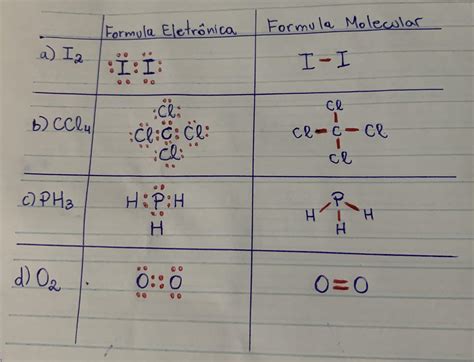 Formula Eletrônica
Formula Molecular
a) I₂
I I
I - I
b) CCl₄
Cl
Cl C Cl
Cl
Cl
Cl - C - Cl
Cl
c) PH₃
H P H
H
P
H H H
d) O₂
O O
O = O